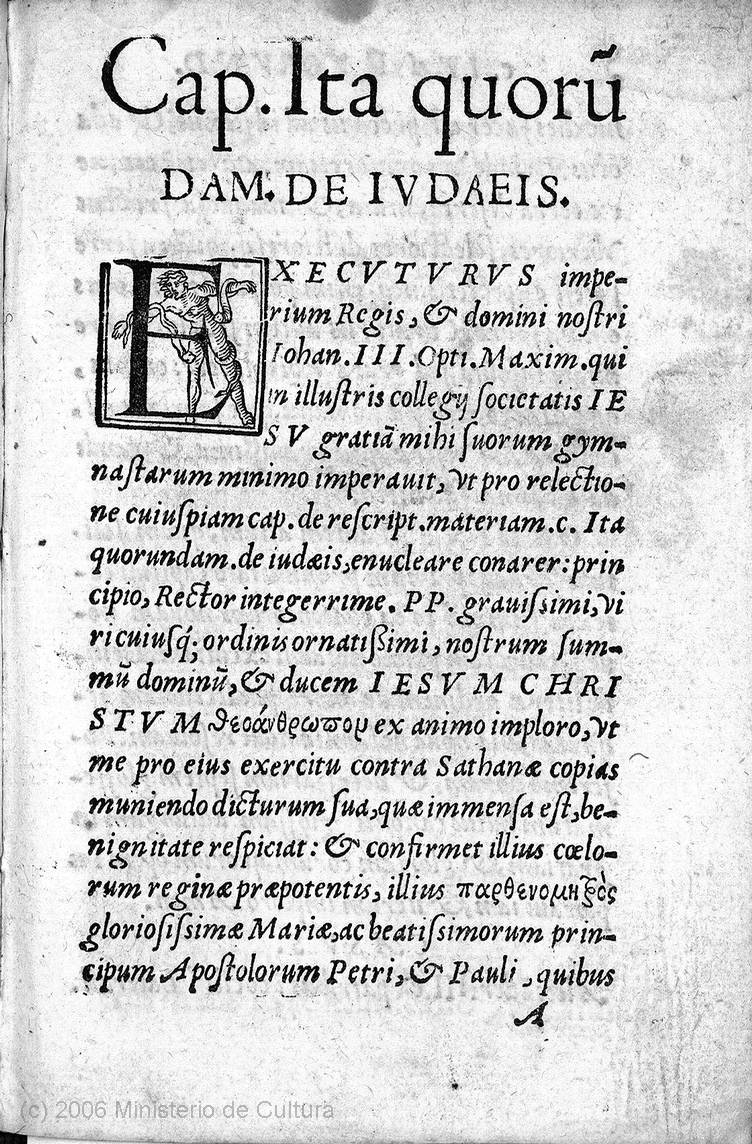 Cap. Ita quorū
DAM. DE IVDAEIS.
EXECVTVRVS impe-
rium Regis, & domini noſtri
Iohan. III. Opti. Maxim. qui
in illuſtris collegij ſocietatis IE
SV gratiā mihi ſuorum gym-
naſtarum minimo imperauit, vt pro relectio-
ne cuiuſpiam cap. de reſcript. materiam. c. Ita
quorundam. de iudæis, enucleare conarer: prin
cipio, Rector integerrime. PP. grauiſsimi, vi
ri cuiuſq́; ordinis ornatiſsimi, noſtrum ſum-
mū dominū, & ducem IESVM CHRI
STVM θεοάνθρωπον ex animo imploro, vt
me pro eius exercitu contra Sathanæ copias
muniendo dicturum ſua, quæ immenſa eſt, be-
nignitate reſpiciat: & confirmet illius cœlo-
rum reginæ præpotentis, illius παρθενομητρὸς
glorioſiſsimæ Mariæ, ac beatiſsimorum prin-
cipum Apoſtolorum Petri, & Pauli, quibus
A
(c) 2006 Ministerio de Cultura